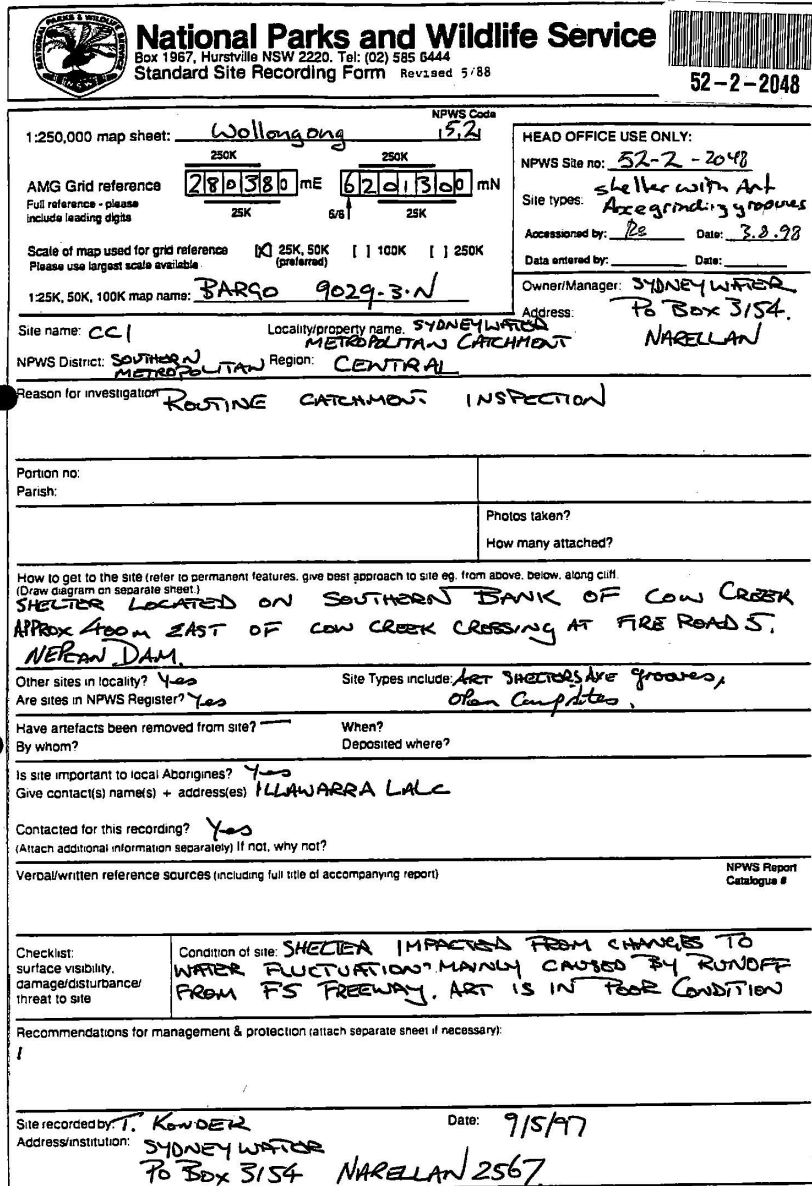 NATIONAL PARKS & WILDLIFE SERVICE
N.S.W.
National Parks and Wildlife Service
Box 1967, Hurstville NSW 2220. Tel: (02) 585 6444
Standard Site Recording Form Revised 5/88
52-2-2048
1:250,000 map sheet: Wollongong
NPWS Code
52
250K 250K
AMG Grid reference 280380 mE 6201300 mN
Full reference - please
include leading digits
25K 6/8 25K
Scale of map used for grid reference [X] 25K, 50K [ ] 100K [ ] 250K
Please use largest scale available (preferred)
1:25K, 50K, 100K map name: BARGO 9029-3-N
HEAD OFFICE USE ONLY:
NPWS Site no: 52-2-2048
Site types: shelter with Art
Axe grinding grooves
Accessioned by: Date: 3.8.98
Data entered by: Date:
Owner/Manager: SYDNEY WATER
Address: Po Box 3154.
NARELLAN
Site name: CC1 Locality/property name. SYDNEY WATER
METROPOLITAN CATCHMENT
NPWS District: SOUTHERN
METROPOLITAN Region: CENTRAL
Reason for investigation ROUTINE CATCHMENT INSPECTION
Portion no:
Parish:
Photos taken?
How many attached?
How to get to the site (refer to permanent features, give best approach to site eg. from above, below, along cliff.
(Draw diagram on separate sheet.)
SHELTER LOCATED ON SOUTHERN BANK OF COW CREEK
APPROX 400m EAST OF COW CREEK CROSSING AT FIRE ROAD 5.
NEPEAN DAM.
Other sites in locality? Yes Site Types include: ART SHELTORS AXE grooves,
Are sites in NPWS Register? Yes Open Campsites.
Have artefacts been removed from site? — When?
By whom? Deposited where?
Is site important to local Aborigines? Yes
Give contact(s) name(s) + address(es) ILLAWARRA LALC
Contacted for this recording? Yes
(Attach additional information separately) If not, why not?
Verbal/written reference sources (including full title of accompanying report)
NPWS Report
Catalogue #
Checklist:
surface visibility,
damage/disturbance/
threat to site
Condition of site: SHELTER IMPACTED FROM CHANGES TO
WATER FLUCTUATION? MAINLY CAUSED BY RUNOFF
FROM F5 FREEWAY. ART IS IN POOR CONDITION
Recommendations for management & protection (attach separate sheet if necessary):
Site recorded by: T. KONDEK Date: 9/5/97
Address/institution: SYDNEY WATER
Po Box 3154 NARELLAN 2567